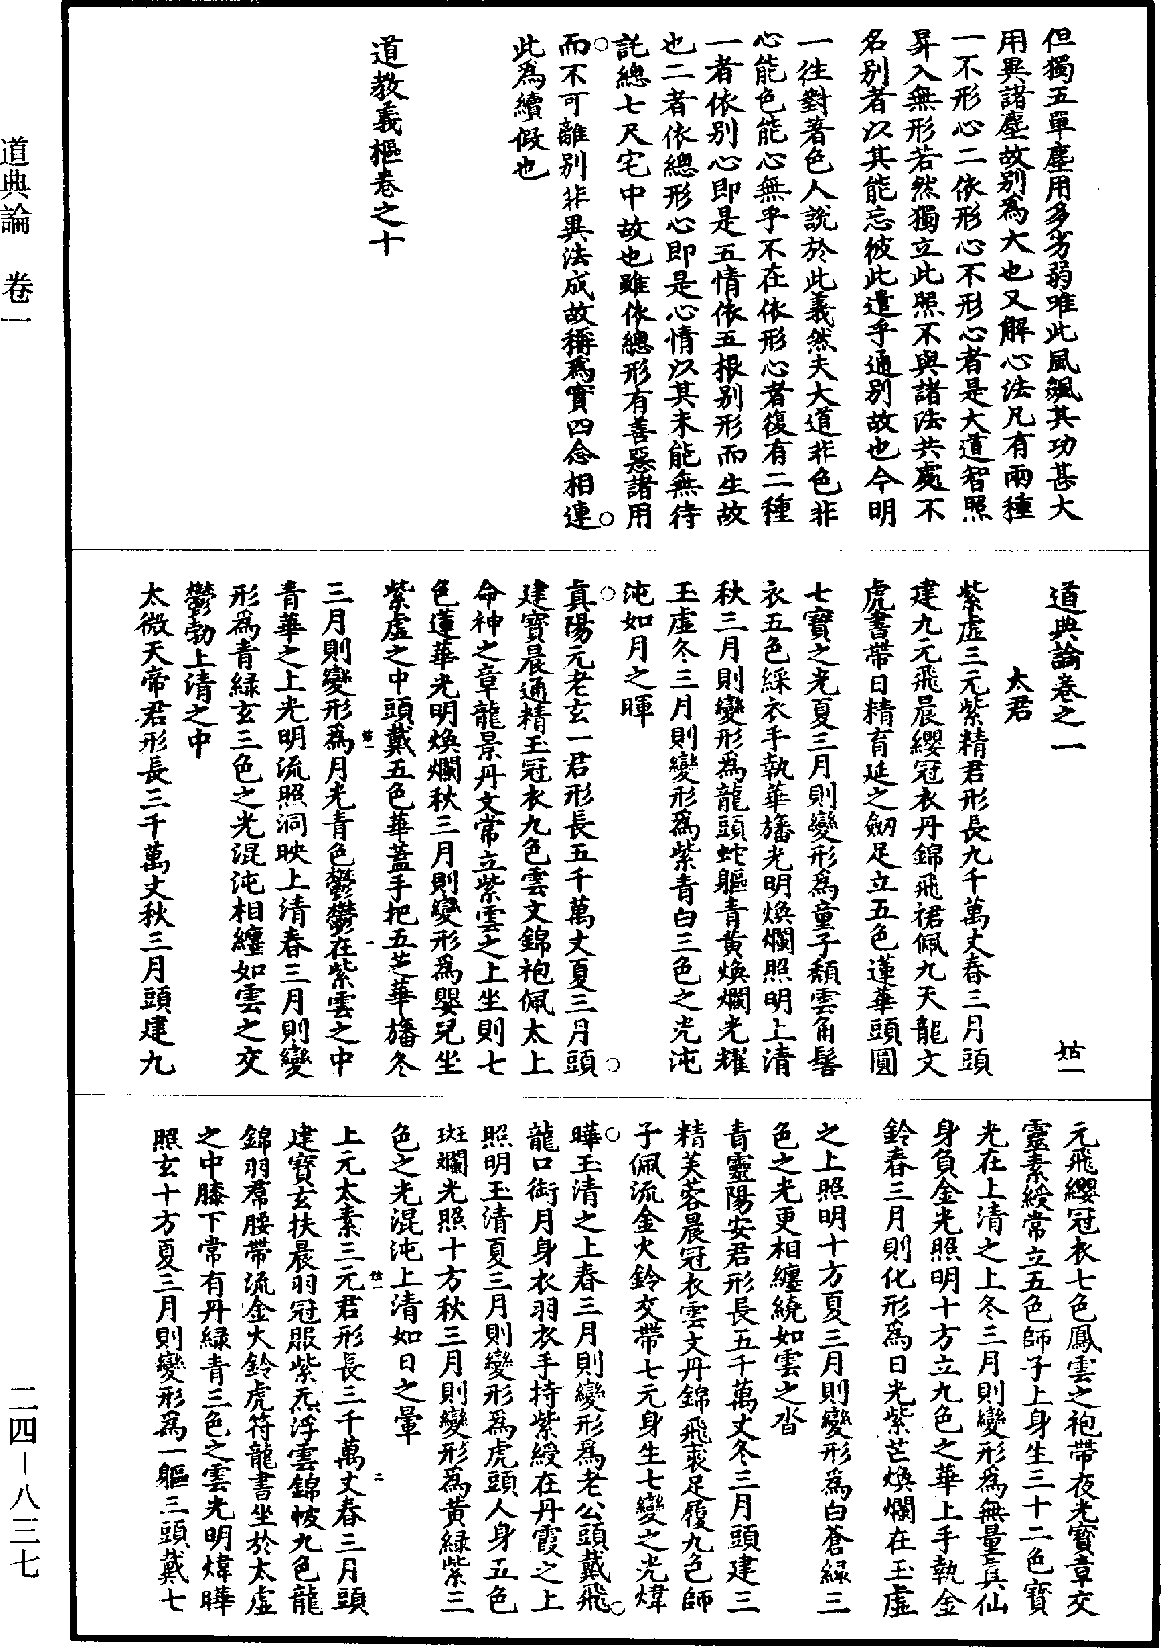 道典論　卷一
但獨五單塵用多劣弱唯此風飆其功甚大
用異諸塵故別爲大也又解心法凡有兩種
一不形心二依形心不形心者是大道智照
昇入無形若然獨立此照不與諸法共處不
名別者以其能忘彼此遣乎通別故也今明
一往對著色人說於此義然夫大道非色非
心能色能心無乎不在依形心者復有二種
一者依別心即是五情依五根別形而生故
也二者依總形心即是心情以其未能無待
託總七尺宅中故也雖依總形有善惡諸用
而不可離別非異法成故稱爲實四念相連
此爲續假也
道教義樞卷之十
道典論卷之一　姑一
太君
紫虛三元紫精君形長九千萬丈春三月頭
建九元飛晨纓冠衣丹錦飛裙佩九天龍文
虎書帶日精育延之劒足立五色蓮華頭圓
七寶之光夏三月則變形爲童子頹雲角髻
衣五色綵衣手執華旛光明煥爛照明上清
秋三月則變形爲龍頭蛇軀青黃煥爛光耀
玉虛冬三月則變形爲紫青白三色之光沌
沌如月之暉
真陽元老玄一君形長五千萬丈夏三月頭
建寶晨通精玉冠衣九色雲文錦袍佩太上
命神之章龍景丹文常立紫雲之上坐則七
色蓮華光明煥爛秋三月則變形爲嬰兒坐
紫虛之中頭戴五色華蓋手把五芝華旛冬
三月則變形爲月光青色鬱鬱在紫雲之中
青華之上光明流照洞映上清春三月則變
形爲青綠玄三色之光混沌相纏如雲之交
鬱勃上清之中
太微天帝君形長三千萬丈秋三月頭建九
元飛纓冠衣七色鳳雲之袍帶夜光寶章交
靈素綬常立五色師子上身生三十二色寶
光在上清之上冬三月則變形爲無量真仙
身負金光照明十方立九色之華上手執金
鈴春三月則化形爲日光紫芒煥爛在玉虛
之上照明十方夏三月則變形爲白蒼綠三
色之光更相纏繞如雲之沓
青靈陽安君形長五千萬丈冬三月頭建三
精芙蓉晨冠衣雲文丹錦飛裘足履九色師
子佩流金火鈴交帶七元身生七變之光煒
曄玉清之上春三月則變形爲老公頭戴飛
龍口銜月身衣羽衣手持紫綬在丹霞之上
照明玉清夏三月則變形爲虎頭人身五色
斑斕光照十方秋三月則變形爲黃綠紫三
色之光混沌上清如日之暈
上元太素三元君形長三千萬丈春三月頭
建寶玄扶晨羽冠服紫炁浮雲錦帔九色龍
錦羽帬腰帶流金火鈴虎符龍書坐於太虛
之中膝下常有丹綠青三色之雲光明煒曄
照玄十方夏三月則變形爲一軀三頭戴七
二四—八三七